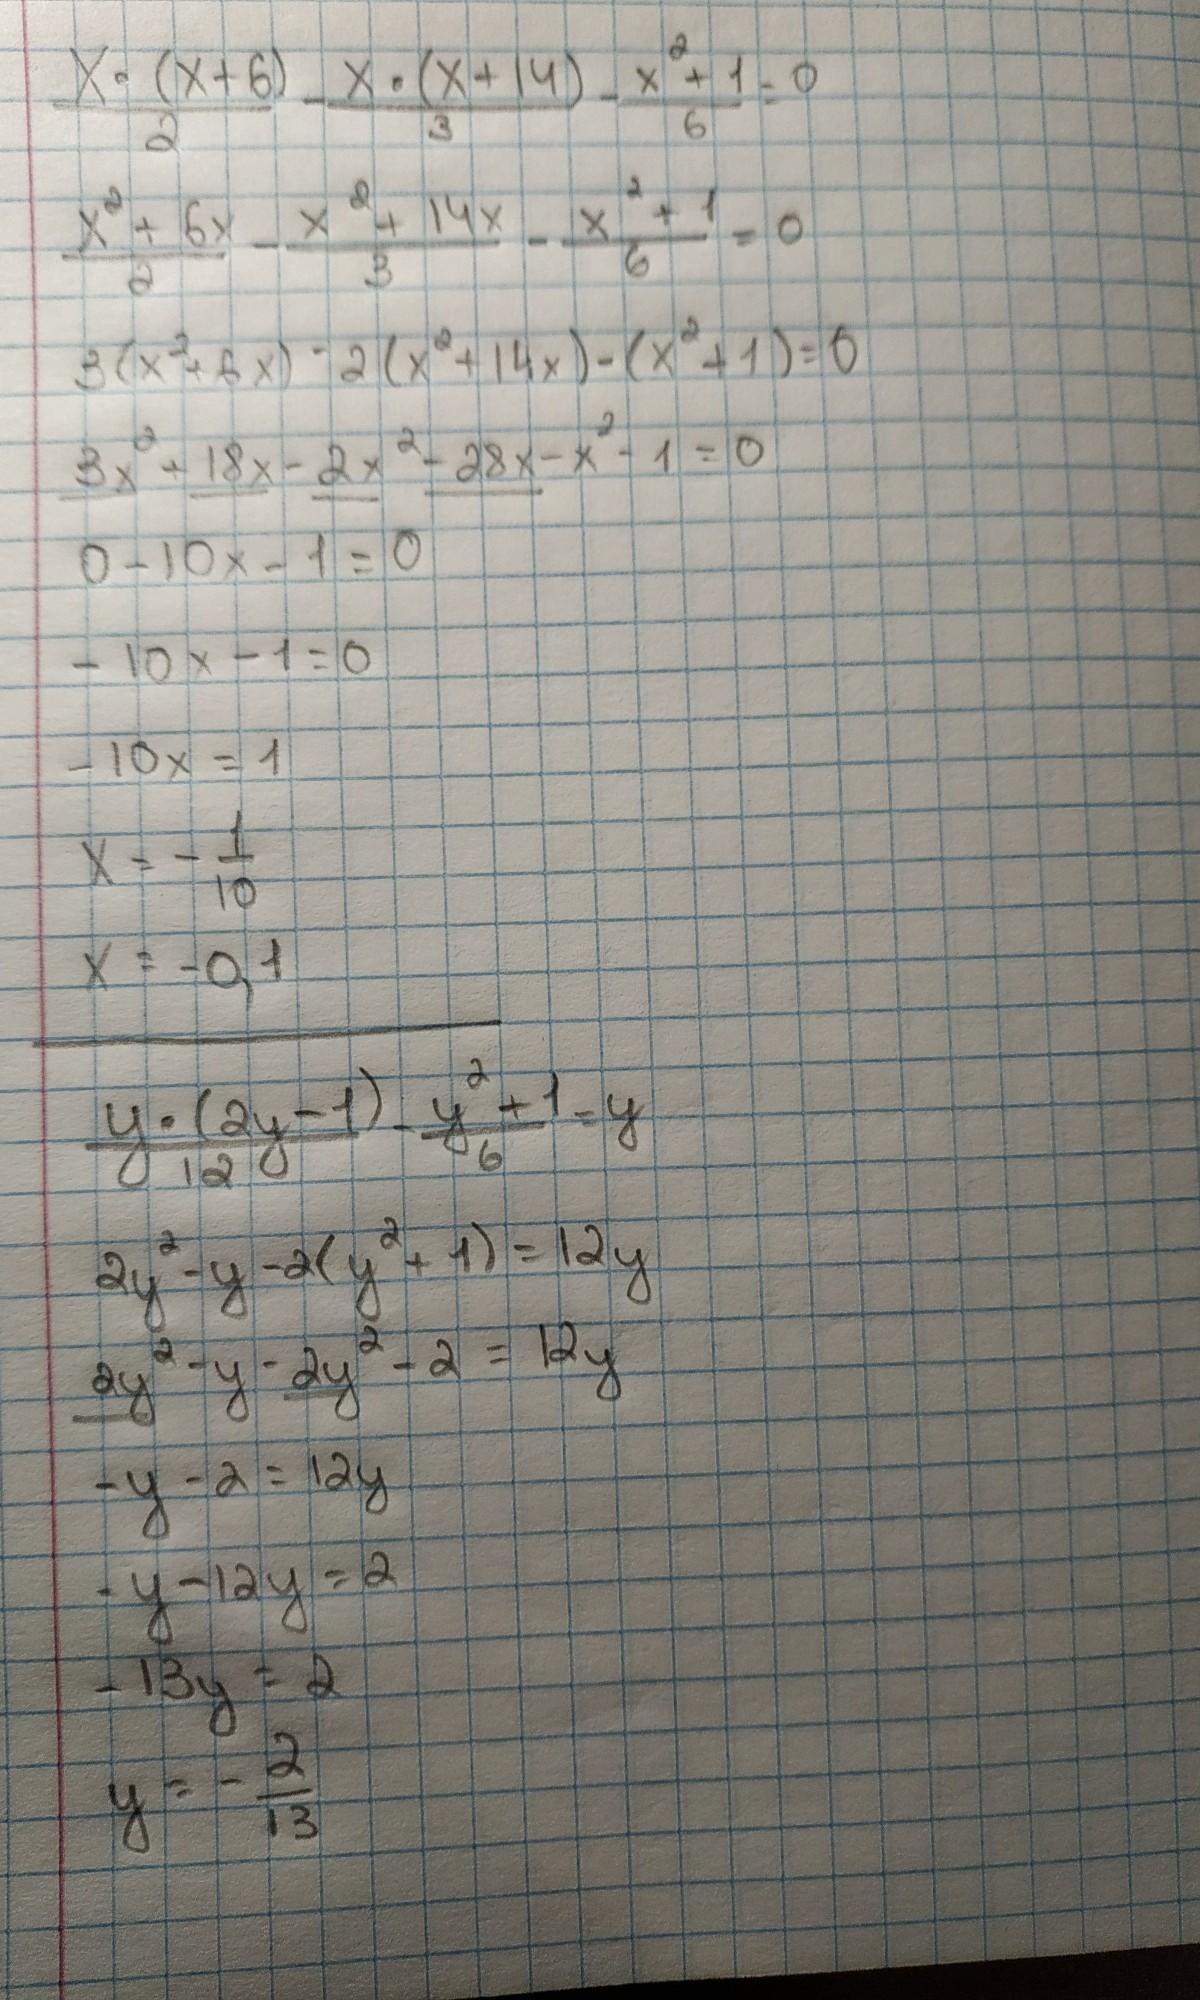 x·(x+6)/2 - x·(x+14)/3 - x²+1/6 = 0
x²+6x/2 - x²+14x/3 - x²+1/6 = 0
3(x²+6x) - 2(x²+14x) - (x²+1) = 0
3x² + 18x - 2x² - 28x - x² - 1 = 0
0 - 10x - 1 = 0
- 10x - 1 = 0
- 10x = 1
x = - 1/10
x = -0,1
y·(2y-1)/12 - y²+1/6 = y
2y² - y - 2(y²+1) = 12y
2y² - y - 2y² - 2 = 12y
- y - 2 = 12y
- y - 12y = 2
- 13y = 2
y = - 2/13